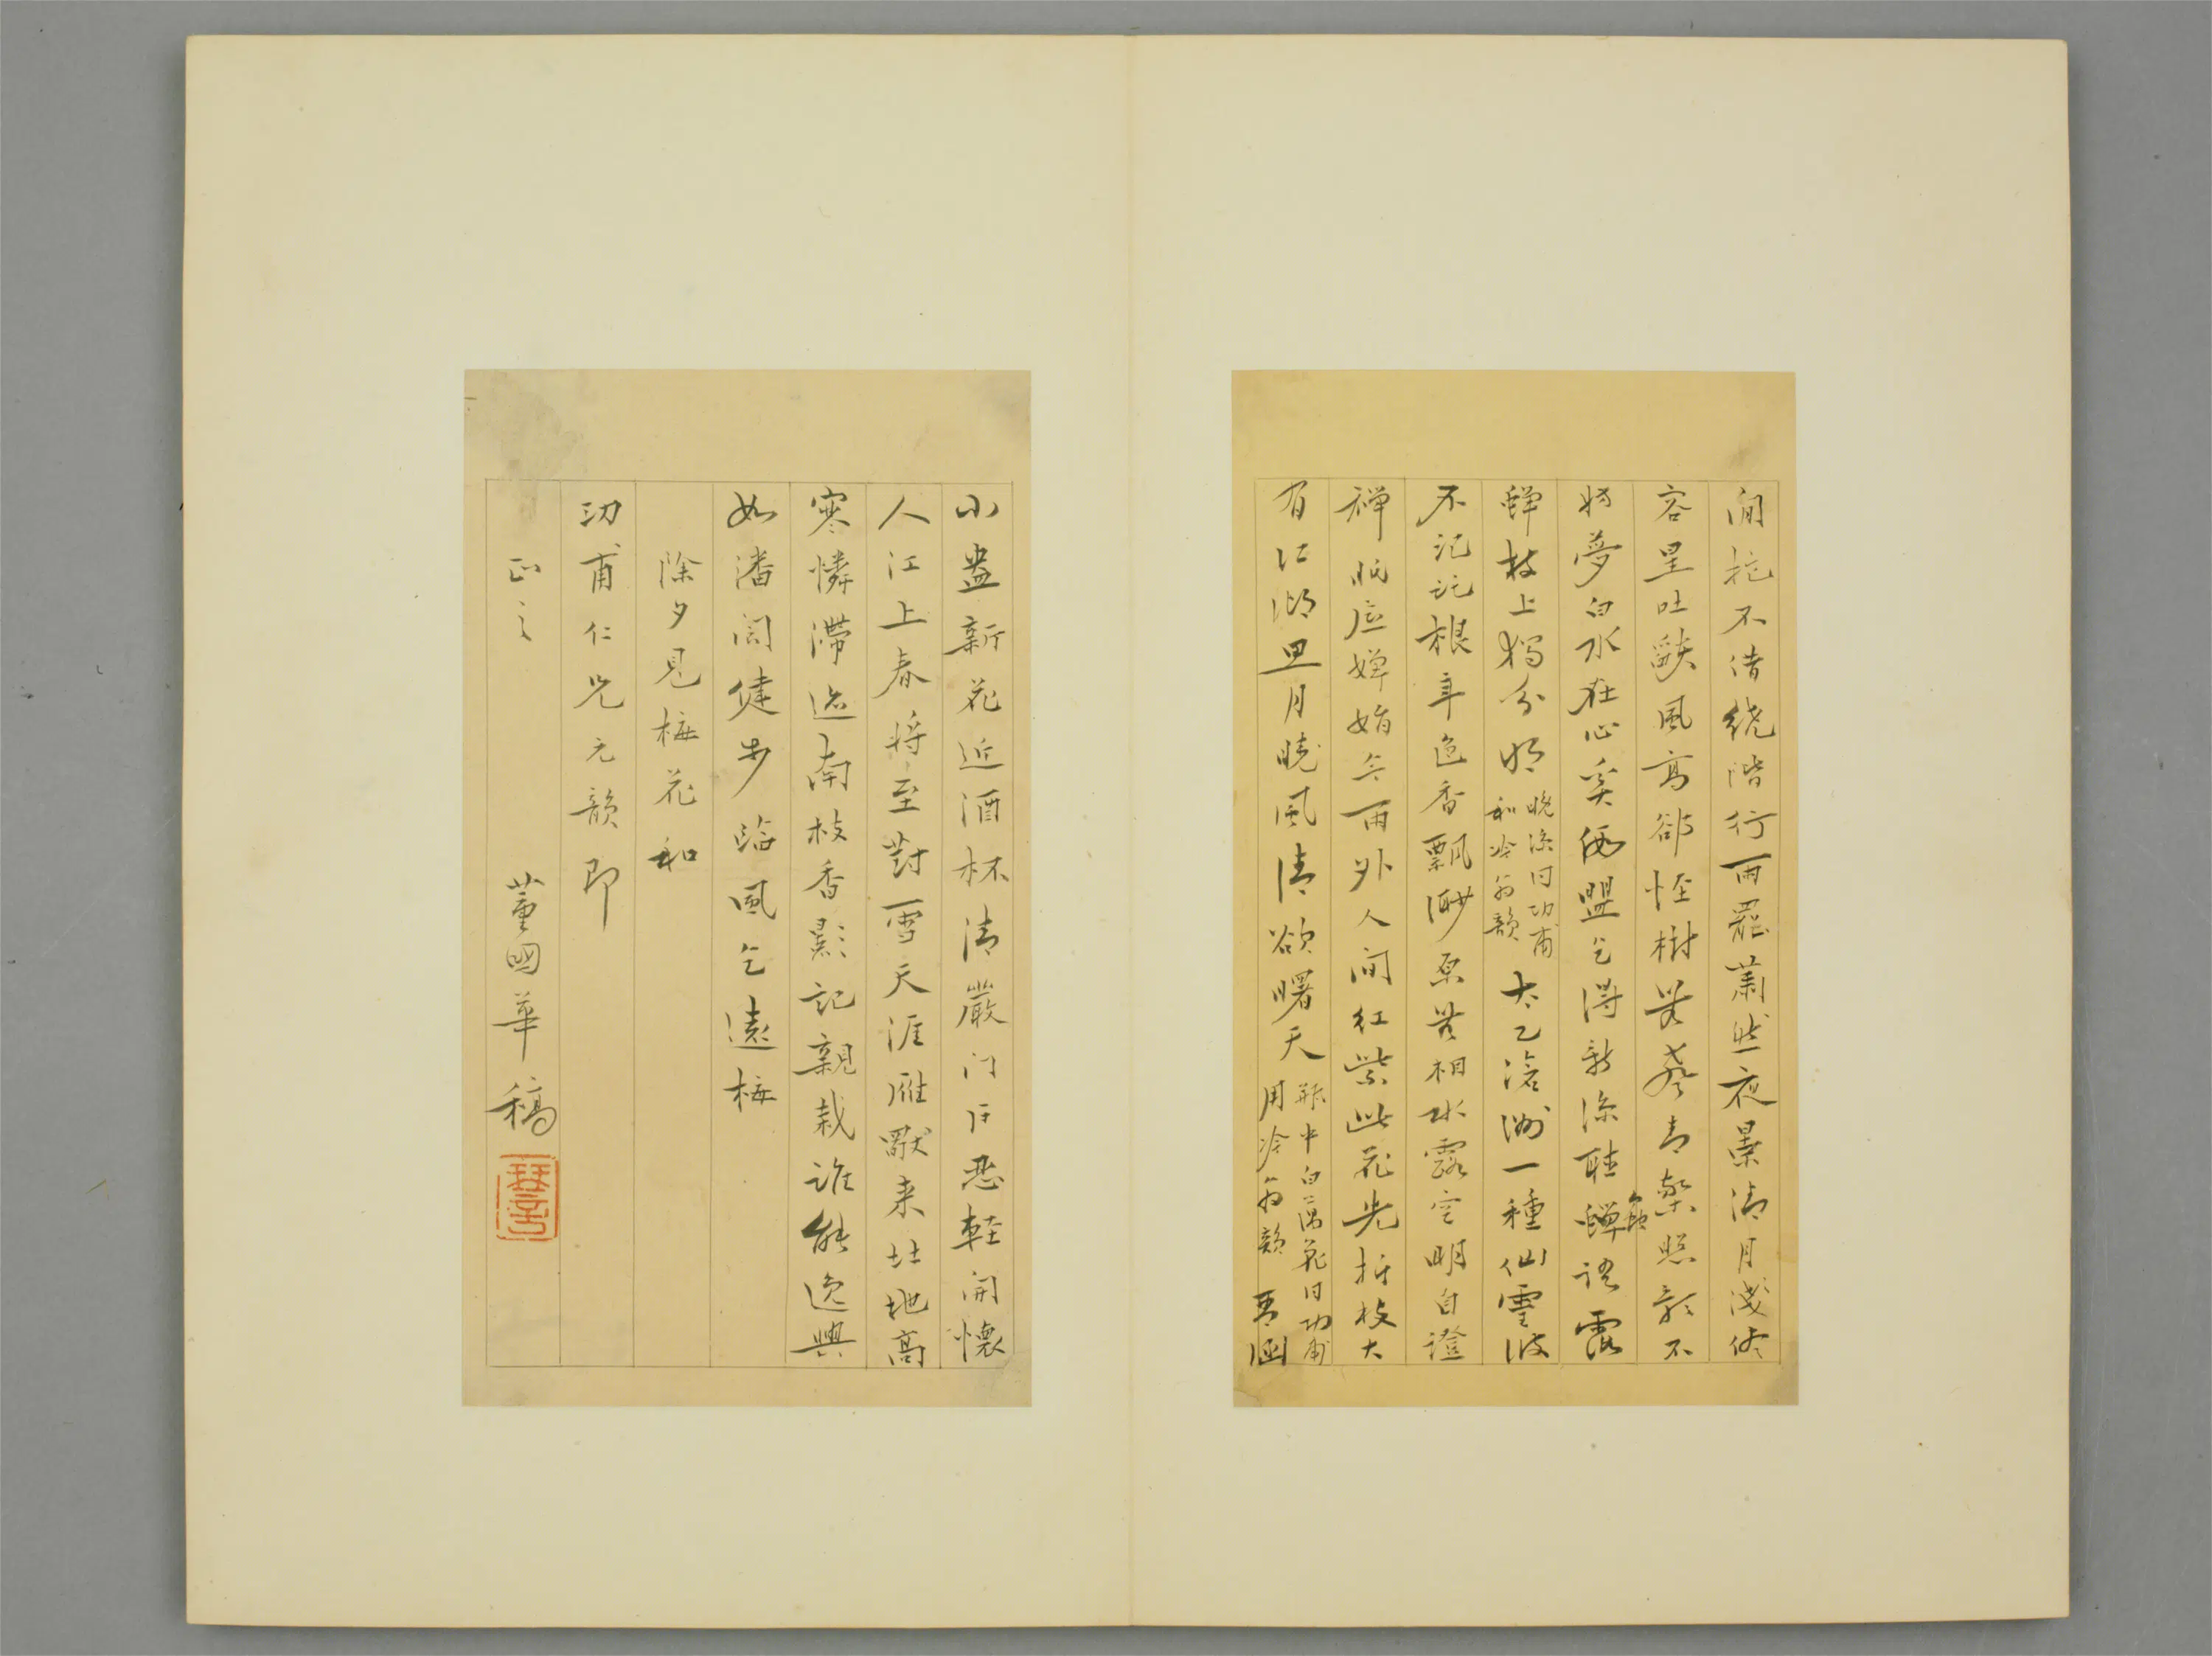 閒拕不借繞階行雨罷蕭然夜景清月淺
容星吐燄風高卻怪樹無聲青藜照影不
妨夢白水在心奚俟盟乞得新涼聽蟬語露
蟬枝上獨分明
晚涼同功甫
和冷翁韻
太乙滄洲一種仙雲波
不記託根年色香飄渺原無相水露空明自證
禪嬋娟雨外人間紅紫此花先折枝大
有江湖思月曉風清欲曙天
缾中白蕅花同功甫
用冷翁韻
琴涵
小盎新花近酒杯清嚴門戶恐輕開懷
人江上春將至對雪天涯雁厭來地高
寒憐滯迹南枝香影記親栽誰能逸興
如潘閬健步臨風乞遠梅
除夕見梅花和
功甫仁兄元韻即
正之
董國華稿